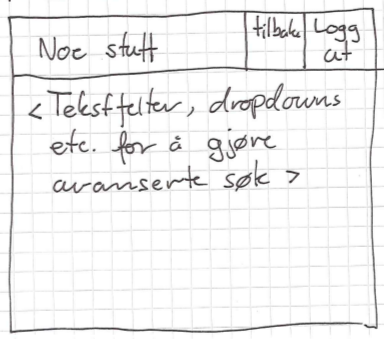 Noe stuff
tilbake
Logg
ut
<Tekstfelter, dropdowns
etc. for å gjøre
avanserte søk >